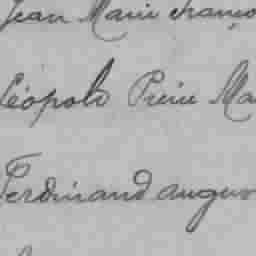 Jean Marie franço
Léopold Pierre Ma
Ferdinand augus